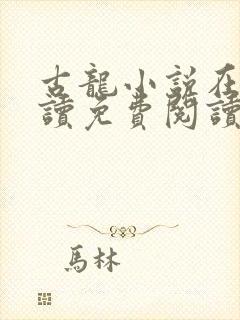 古龍小說在
讀免費閱讀
馬林